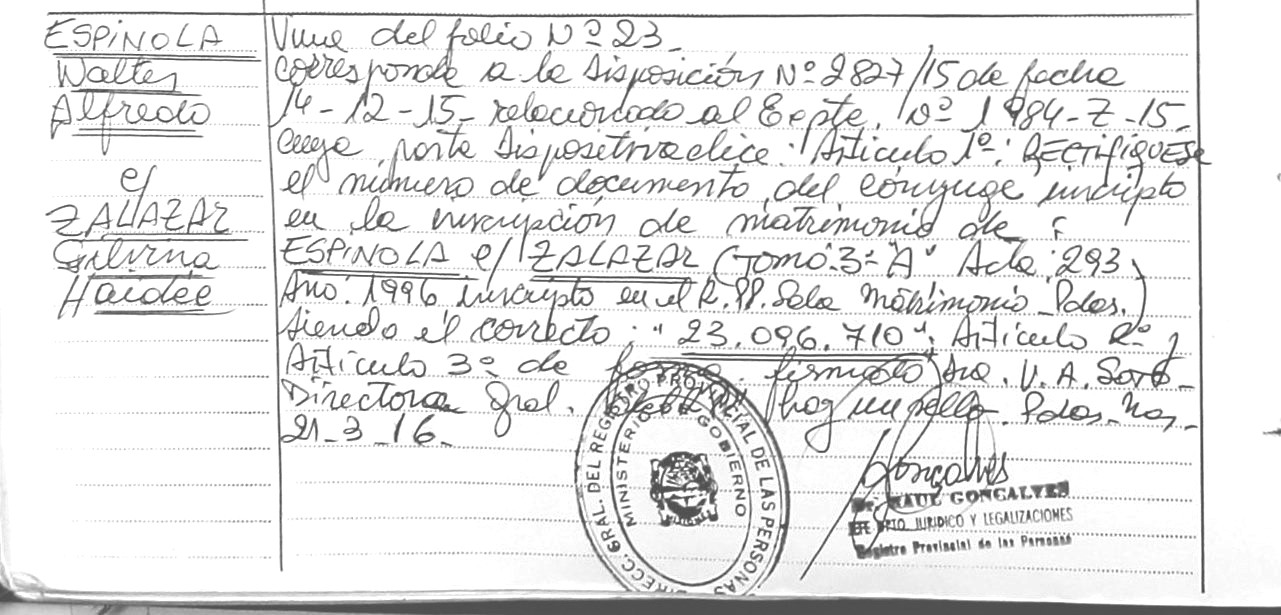 ESPINOLA
Walter
Alfredo
c/
ZALAZAR
Silvina
Haidée
Viene del folio Nº 23_
corresponde a la Disposición Nº 2827/15 de fecha
14-12-15_ relacionado al Expte. Nº 1984-Z-15_
cuya parte Dispositiva dice: "Artículo 1º: RECTIFIQUESE
el número de documento del cónyuge inscripto
en la inscripción de matrimonio de:
ESPINOLA c/ ZALAZAR (Tomo: 3- "A" Acta: 293
Año: 1996 inscripto en el R.PP. Sala Matrimonio Pdas.)
siendo el correcto: "23.096.710". Artículo 2º y
Artículo 3º de forma. firmado Dra. V. A. Soto_
Directora Gral. hay un sello_ Pdas_ Mns_
21_3_16_
Gonçalves
Dr. RAUL GONCALVES
JEFE DPTO JURIDICO Y LEGALIZACIONES
Registro Provincial de las Personas
DIRECC. GRAL. DEL REGISTRO PROVINCIAL DE LAS PERSONAS
MINISTERIO DE GOBIERNO